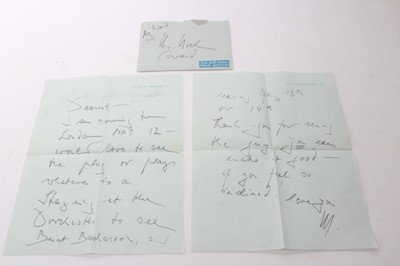 By hand
Mr. Noel
Coward
Dearest —
I am coming to
London MAY 12 —
would love to see
the play or plays
whatever is on.
Staying at the
Dorchester to see
Burt Bacharach,
May 13th
or 14th
Thank you for seeing
the guy you can
make it good —
if you feel so
inclined! love you
M.